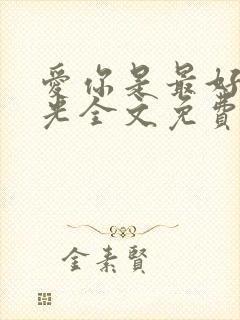 愛你是最好
光全文免費
金素賢